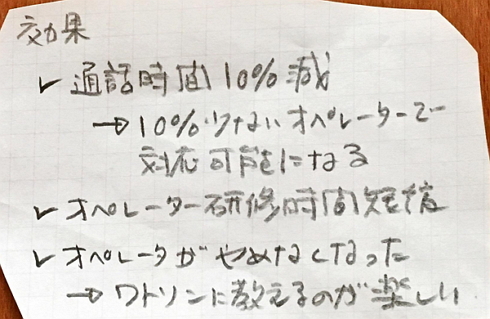 効果
✓ 通話時間10%減
→ 10%少ないオペレーターで
対応可能になる
✓ オペレーター研修時間短縮
✓ オペレータがやめなくなった
→ ワトソンに教えるのが楽しい